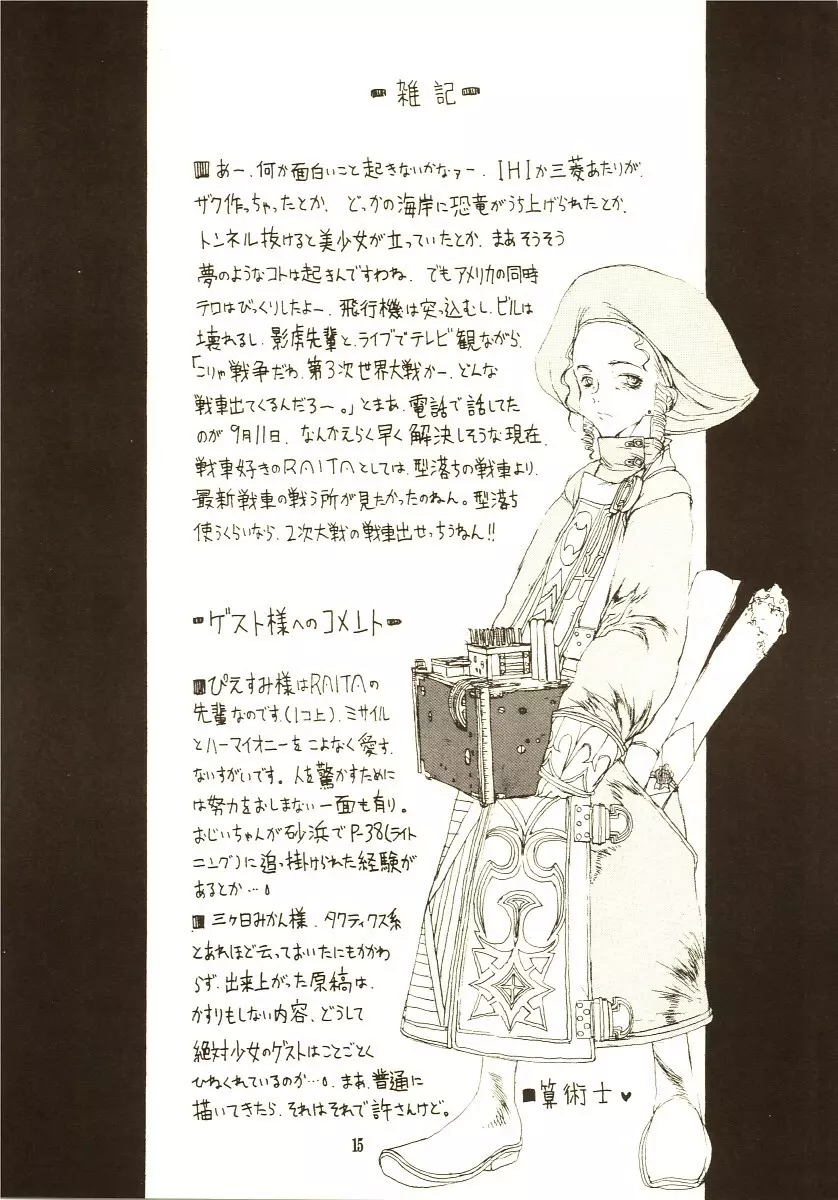 雑記
あー、何か面白いこと起きないかなァー、IHIか三菱あたりが、
ザク作っちゃったとか、どっかの海岸に恐竜がうち上げられたとか、
トンネル抜けると美少女が立っていたとか、まあそうそう
夢のようなコトは起きんですわね、でもアメリカの同時
テロはびっくりしたよー、飛行機は突っ込むし、ビルは
壊れるし、影虎先輩と、ライブでテレビ観ながら、
「こりゃ戦争だわ、第3次世界大戦かー、どんな
戦車出てくるんだろー。」とまあ、電話で話してた
のが9月11日、なんかえらく早く解決しそうな現在、
戦車好きのRAITAとしては、型落ちの戦車より、
最新戦車の戦う所が見たかったのねん。型落ち
使うくらいなら、2次大戦の戦車出せっちうねん!!
ゲスト様へのコメント
ぴえすみ様はRAITAの
先輩なのです、(1コ上)、ミサイル
とハーマイオニーをこよなく愛す、
ないすがいです。人を驚かすために
は努力をおしまない一面も有り。
おじいちゃんが砂浜でP-38(ライト
ニング)に追っ掛けられた経験が
あるとか…。
三ヶ日みかん様、タクティクス系
とあれほど云っておいたにもかかわ
らず、出来上がった原稿は、
かすりもしない内容、どうして
絶対少女のゲストはことごとく
ひねくれているのか…。まあ、普通に
描いてきたら、それはそれで許さんけど。
算術士♥
15